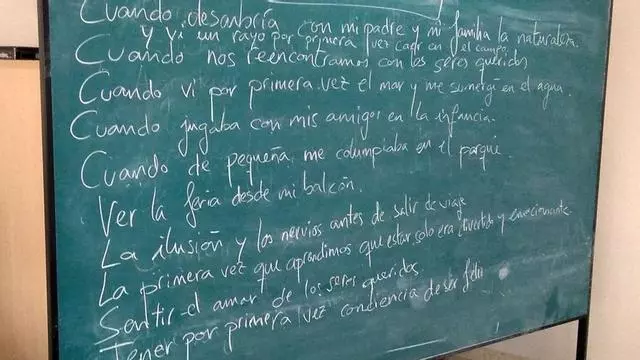 Cuando descubría con mi padre y mi familia la naturaleza
y vi un rayo por primera vez caer en el campo.
Cuando nos reencontramos con los seres queridos
Cuando vi por primera vez el mar y me sumergí en el agua.
Cuando jugaba con mis amigos en la infancia.
Cuando de pequeña me columpiaba en el parque.
Ver la feria desde mi balcón.
La ilusión y los nervios antes de salir de viaje
La primera vez que aprendimos que estar solo era divertido y emocionante.
Sentir el amor de los seres queridos.
Tener por primera vez conciencia de ser feliz